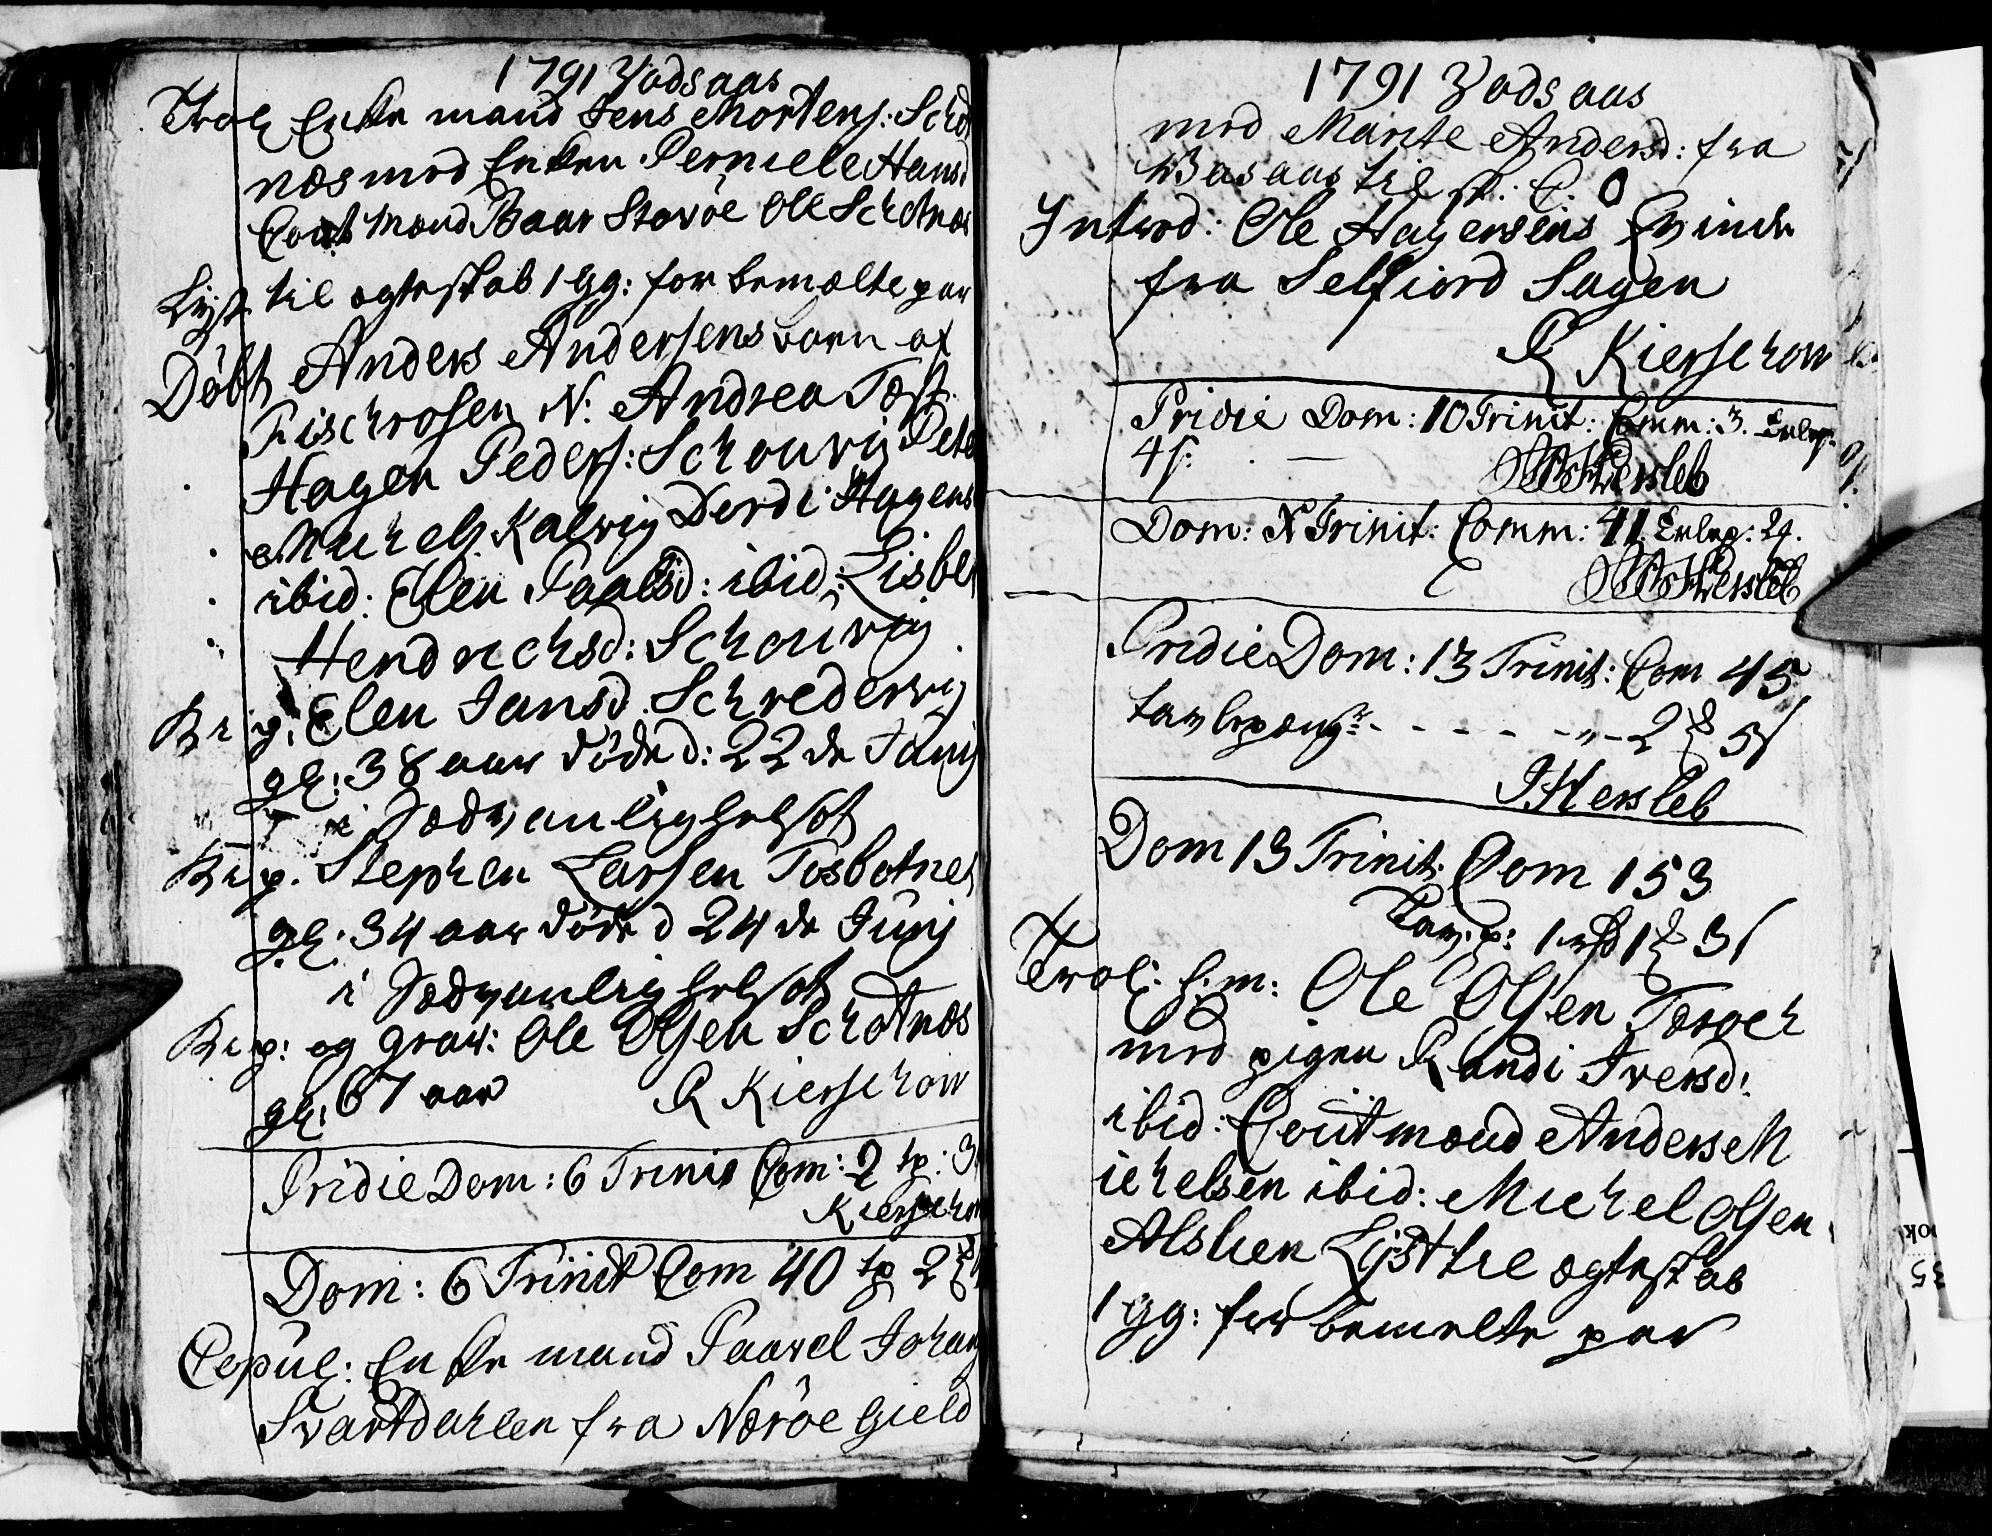 1791 Vodsaas
Trol Enke mand Jens Mortens: Schot
næs med Enken Perniele Hansd
Cout Mænd Baar Storøe Ole Schotnæs
Lyst til ægteskab 1 gg: for bemælte par
Døbt Anders Andersens barn af
Fischrosen N: Andrea Test.
Hagen Peders: Schouvig Pete
Michels Kalvig Berdi Hagens
ibid: Elen Paalsd: ibid: Lisbet
Hendrichsd: Schouvig
Br: p: Elen Jansd Schredervig
gl: 38 aar døde d: 22 de Junij
i Sædvanlighelsot
Br: p. Stephen Larsen Tosbotnet
gl: 34 aar døde d 24 de Junij
i Sædvanlighelsot
Br: p: og grav: Ole Olsen Schotnæs
gl: 67 aar R Kierschow
Pridie Dom: 6 Trinit Com: 2 tp: 3
Kierschow
Dom: 6 Trinit Com 40 tp 2
Copul: Enke mand Paavel Johans
Svartdahlen fra Nærøe Gield
1791 Vodsaas
med Marite Andersd: fra
Basaas til
Introd: Ole Hagensens Qvinde
fra Selfiord Sagen
R Kierschow
Pridie Dom: 10 Trinit: Comm: 3.
4 s:
Hersleb
Dom: X Trinit: Comm: 41. 24.
Hersleb
Pridie Dom: 13 Trinit: Com 45
tavlepeng: - - - - - 2 5 s
J Hersleb
Dom 13 Trinit. Com 153
Tav: p: 1 rd 1 3 s
Trol: E: m: Ole Olsen Terœch
med pigen Randi Iversd:
ibid: Coutmænd Anders M
ichelsen ibid: Michel Olsen
Alslien Lyst til ægteskab
1 gg: for bemelte par